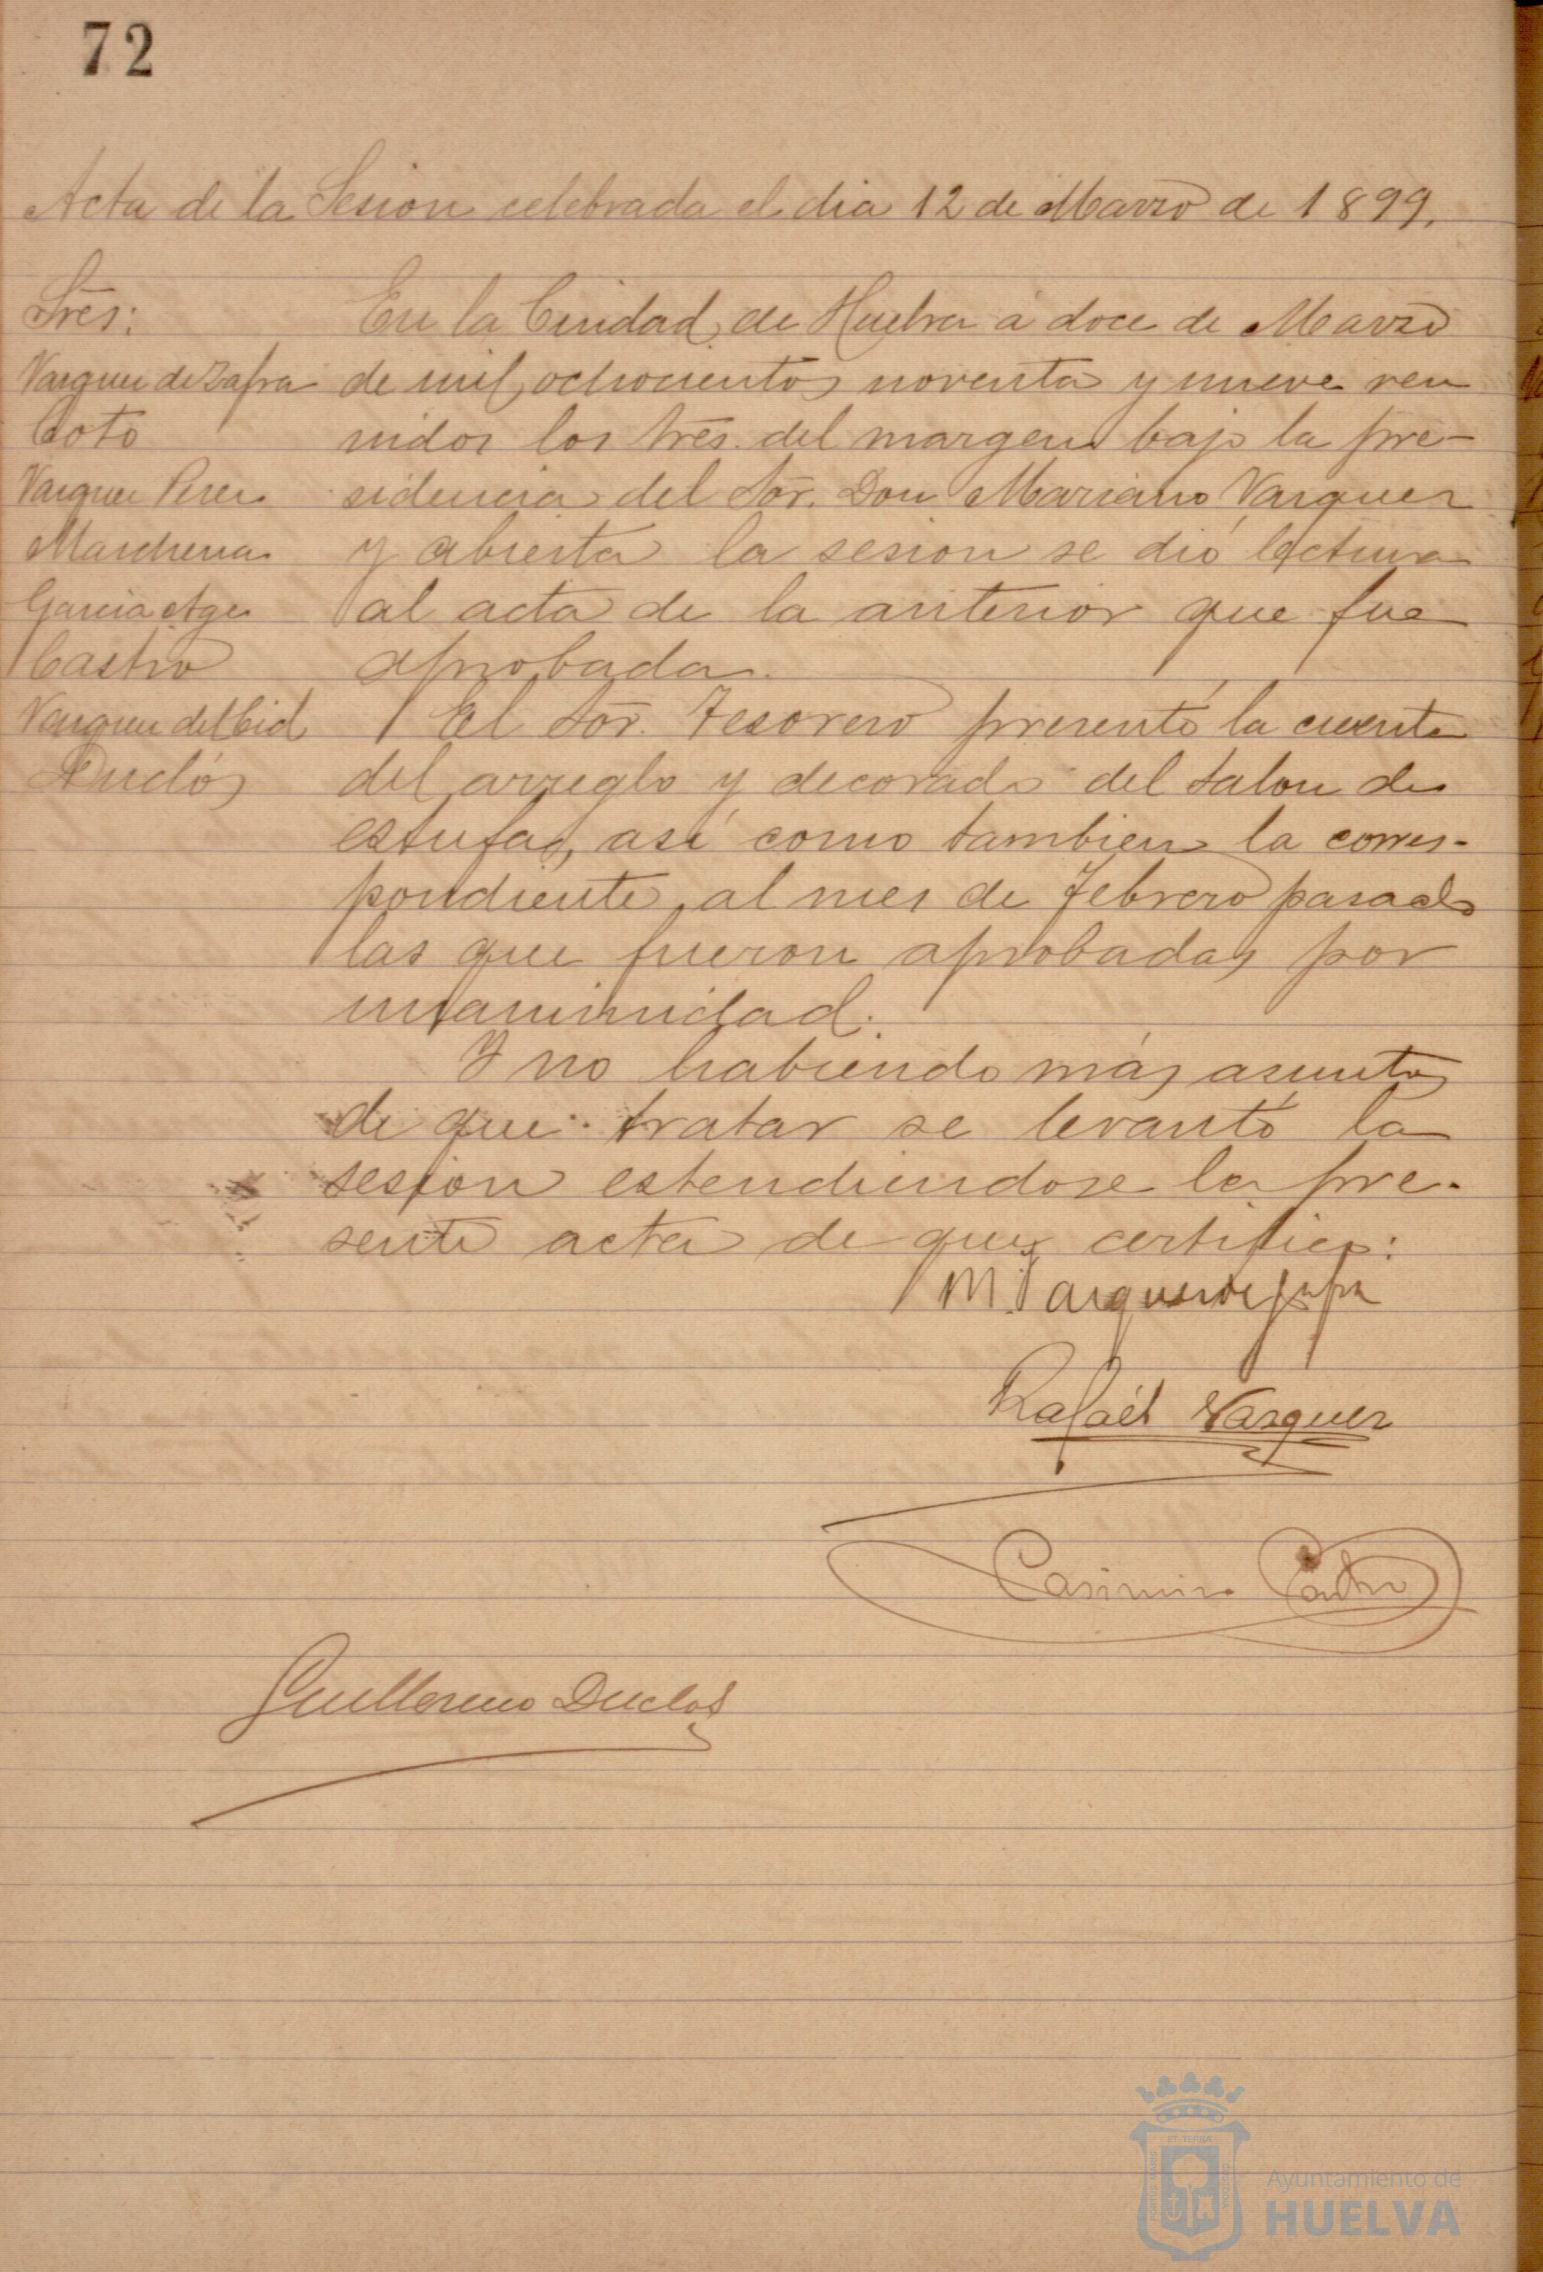 72
Acta de la Sesion celebrada el dia 12 de Marzo de 1899.
Sres:
Vazquez de Zafra
Coto
Vazquez Perez
Marchena
Garcia Age
Castro
Vazquez del Cid
Duclós
En la Ciudad de Huelva á doce de Marzo
de mil ochocientos noventa y nueve reu
nidos los Sres. del margen bajo la pre-
sidencia del Sor. Don Mariano Vazquez
y abierta la sesion se dió lectura
al acta de la anterior que fue
aprobada.
El Sor. Tesorero presentó la cuenta
del arreglo y decorado del salon de
estufas, así como tambien la corres-
pondiente al mes de Febrero pasado
las que fueron aprobadas por
unanimidad.
Y no habiendo más asuntos
de que tratar se levantó la
sesion estendiendose la pre-
sente acta de que certifico:
M. Vazquez de Zafra
Rafaél Vazquez
Casimiro Castro
Guillermo Duclos
ET TERRA
PORTUS MARIS
CUSTODIA
Ayuntamiento de
HUELVA